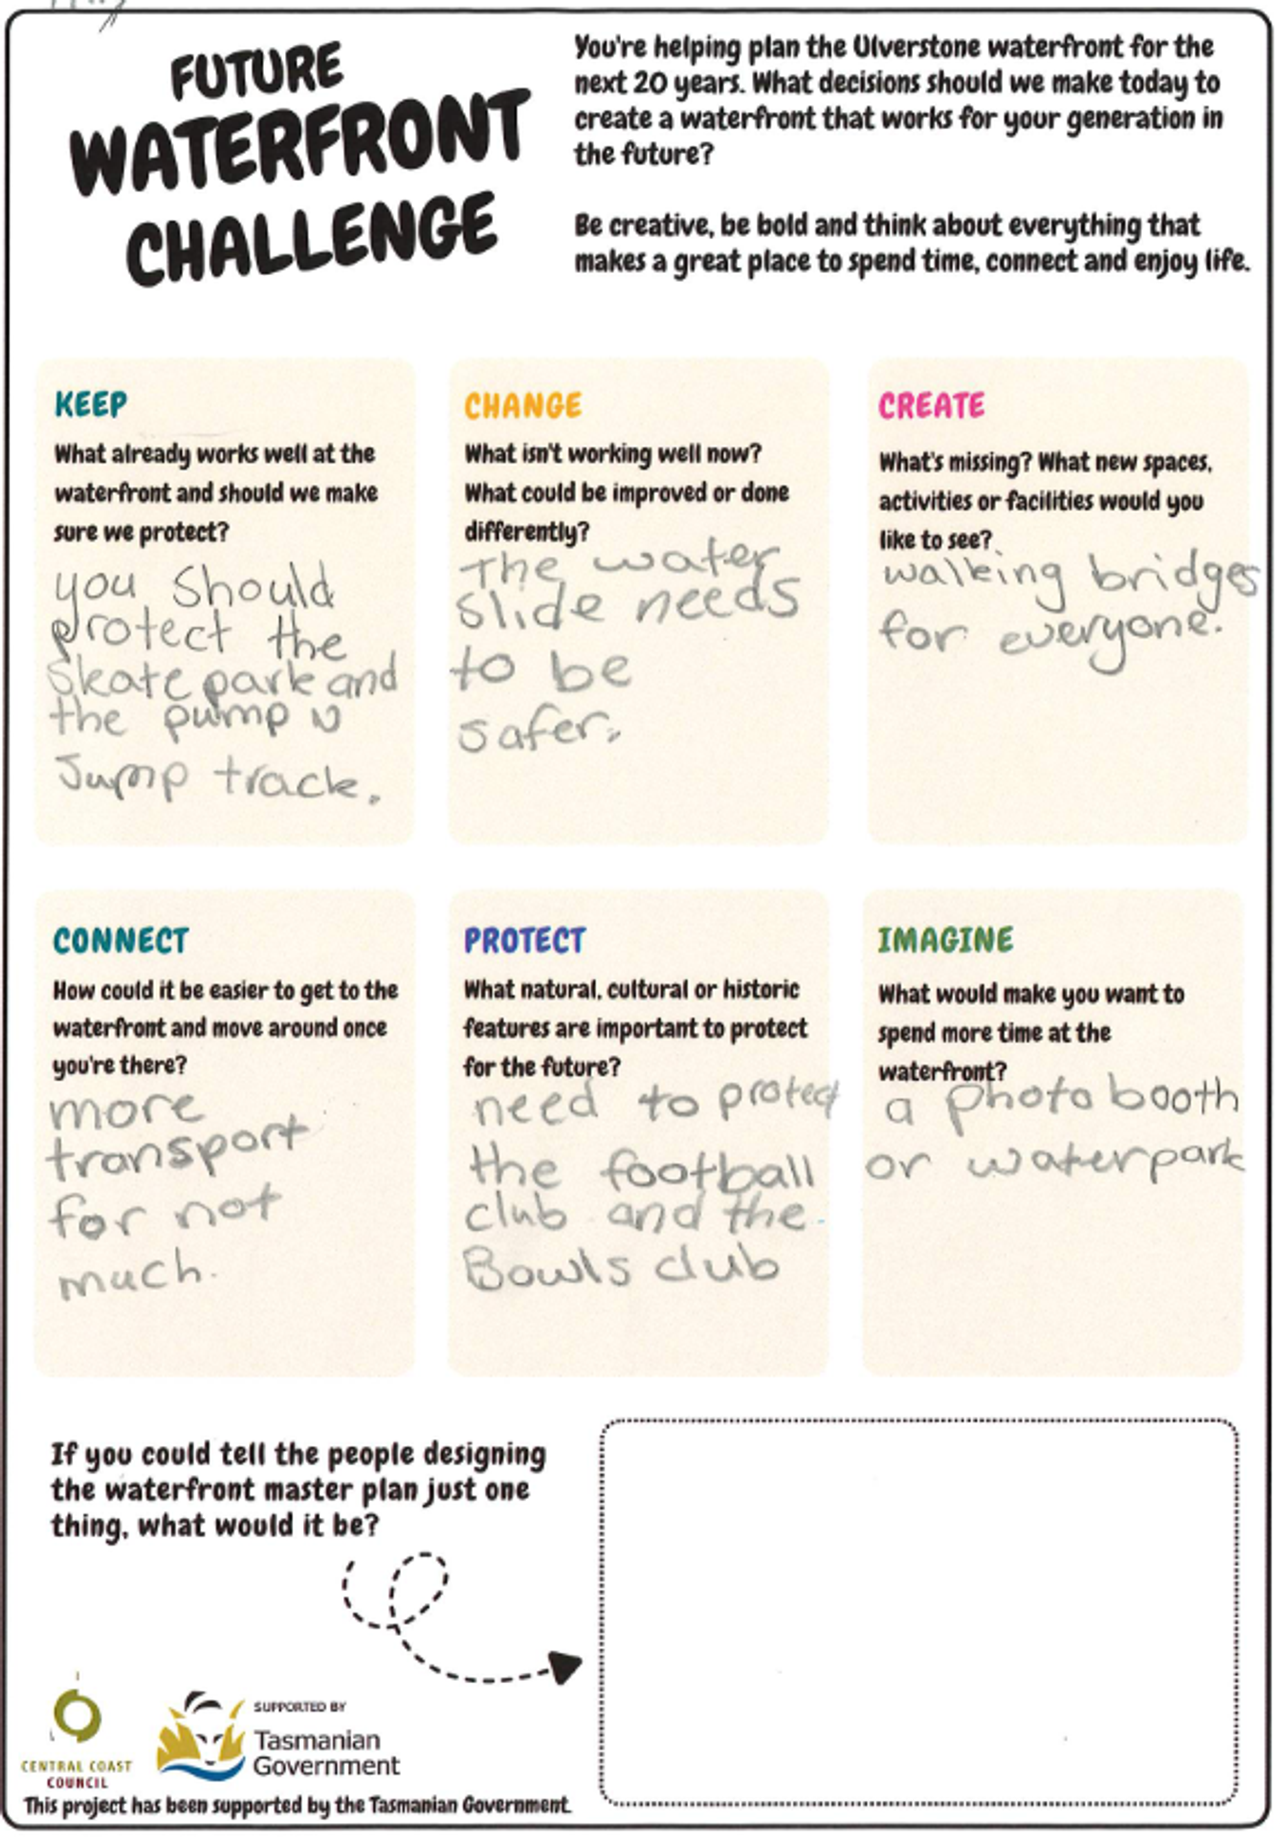 FUTURE
WATERFRONT
CHALLENGE
You're helping plan the Ulverstone waterfront for the
next 20 years. What decisions should we make today to
create a waterfront that works for your generation in
the future?
Be creative, be bold and think about everything that
makes a great place to spend time, connect and enjoy life.
KEEP
What already works well at the
waterfront and should we make
sure we protect?
you should
protect the
skate park and
the pump n
Jump track.
CHANGE
What isn't working well now?
What could be improved or done
differently?
The water
slide needs
to be
safer.
CREATE
What's missing? What new spaces,
activities or facilities would you
like to see?
walking bridges
for everyone.
CONNECT
How could it be easier to get to the
waterfront and move around once
you're there?
more
transport
for not
much.
PROTECT
What natural, cultural or historic
features are important to protect
for the future?
need to protect
the football
club and the
Bowls club
IMAGINE
What would make you want to
spend more time at the
waterfront?
a photo booth
or waterpark
If you could tell the people designing
the waterfront master plan just one
thing, what would it be?
CENTRAL COAST
COUNCIL
SUPPORTED BY
Tasmanian
Government
This project has been supported by the Tasmanian Government.